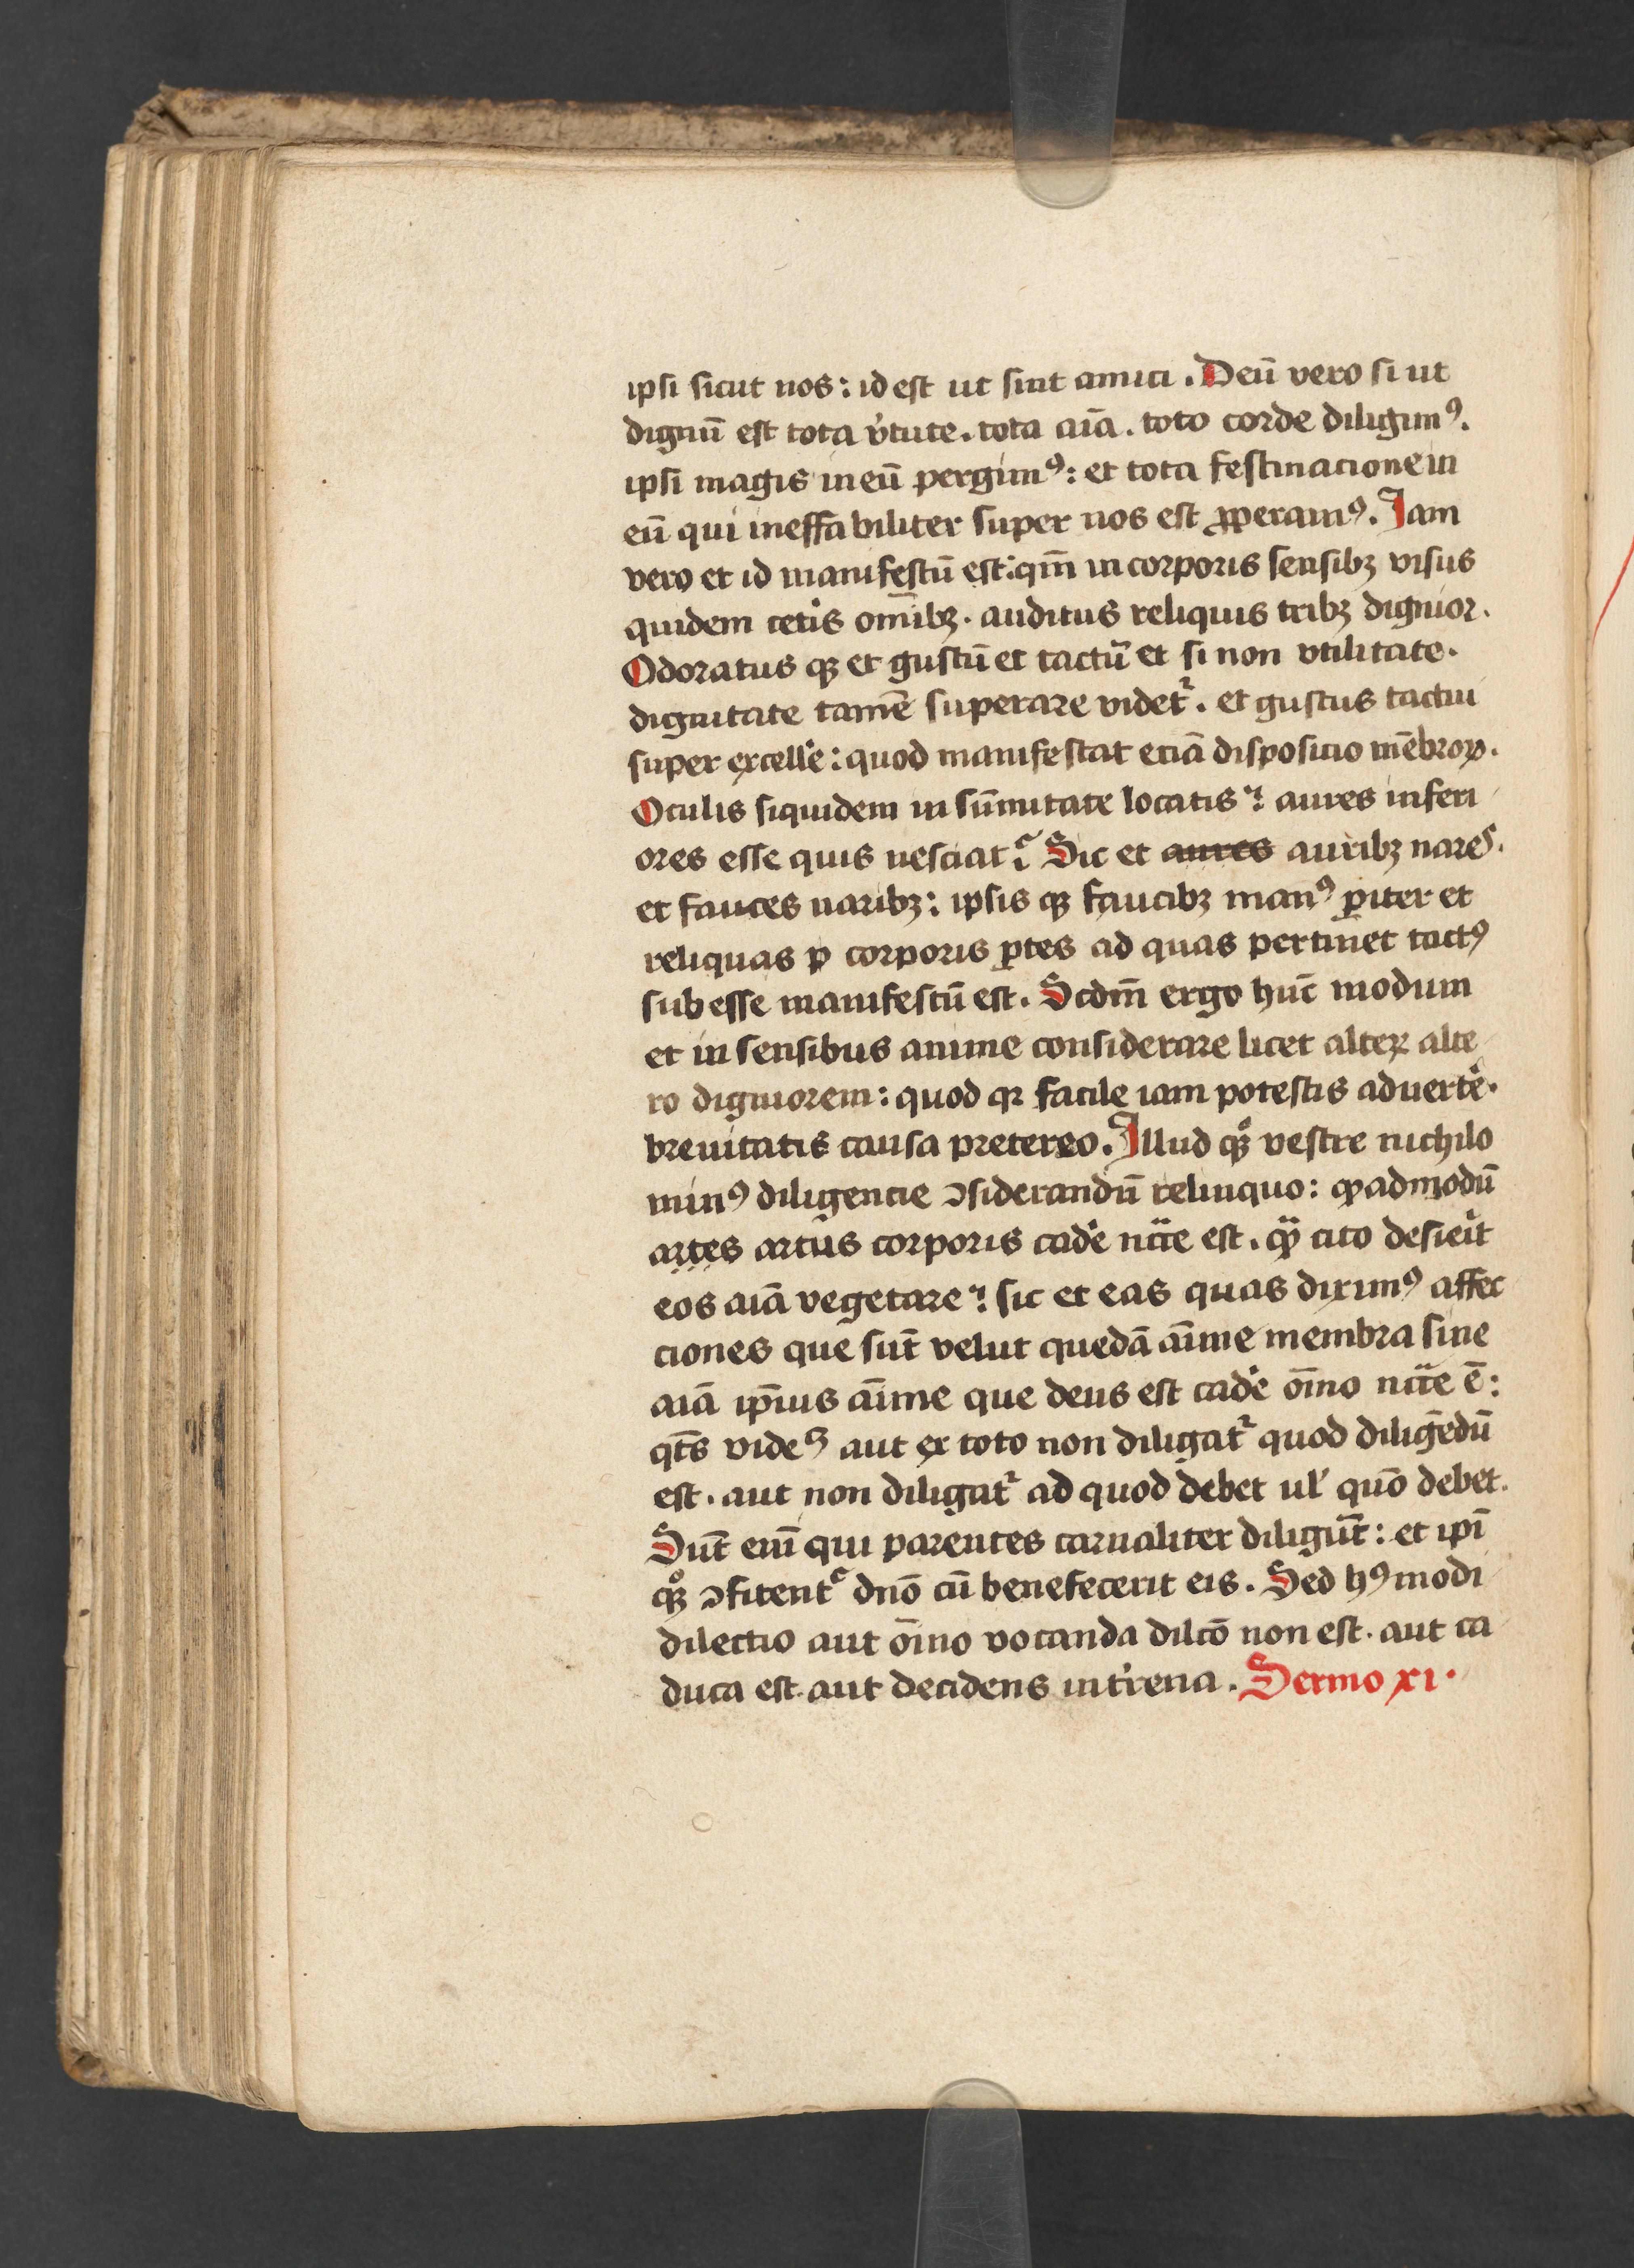 ipsi sicut nos: id est ut sint amici. Deū vero si ut
dignū est tota v̓tute. tota aīa. toto corde diligimꝰ.
ipsi magis in eū pergimꝰ: et tota festinacione in
eū qui ineffabiliter super nos est ꝓperamꝰ. Iam
vero et id manifestū est: qm̄ in corporis sensibꝫ visus
quidem cet̓is om̄ibꝫ. auditus reliquis tribꝫ dignior.
Odoratus qꝫ et gustū et tactū et si non vtilitate.
dignitate tamē superare videt᷑. et gustus tactui
super excelle̓: quod manifestat eciā disposicio mēbroꝝ.
Oculis siquidem in sūmitate locatis: aures inferi
ores esse quis nesciat? Sic et aures auribꝫ nares.
et fauces naribꝫ: ipsis qꝫ faucibꝫ manꝰ ꝑiter et
reliquas ꝑ corporis ꝑtes ad quas pertinet tactꝰ
sub esse manifestū est. Scdm̄ ergo hūc modum
et in sensibus anime considerare licet alteꝝ alte
ro digniorem: quod qꝛ facile iam potestis aduerte̓.
breuitatis causa pretereo. Illud qꝫͦ vestre nichilo
minꝰ diligencie ꝯsiderandū relinquo: qꝫadmodū
artes artus corporis cade̓ ncc̄e est. qꝫ cito desie̓it
eos aīa vegetare: sic et eas quas diximꝰ affec
ciones que sūt velut quedā aīme membra sine
aīa ip̄ius aīme que deus est cade̓ oīno ncc̄e ē:
qt̄s videꝫ aut ex toto non diligat᷑ quod diligēdū
est. aut non diligat᷑ ad quod debet ul̓ quō debet.
Sūt eni̅ qui parentes carnaliter diligūt: et ip̄i
qꝫͦ ꝯfitent᷑ dn̄o cū benefecerit eis. Sed hꝰmodi
dilectio aut oīno vocanda dilc̄o non est. aut ca
duca est aut decidens in t̓rena. Sermo xi.